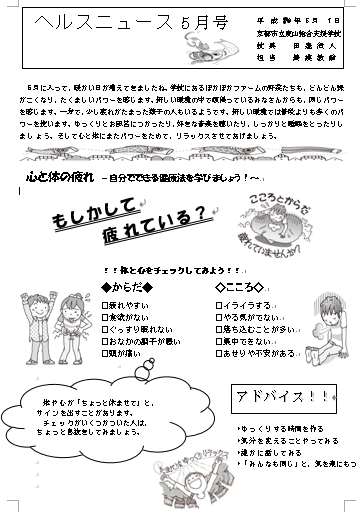 ヘルスニュース 5月号
平成 年 5月 1日
京都市立東山総合支援学校
校長
担当 健康教諭
5月に入って、暖かい日が増えてきましたね。学校にあるぽかぽかファームの野菜たちも、どんどん葉
が大きくなり、たくましいパワーを感じます。新しい環境の中で頑張っているみなさんからも、同じパワー
を感じます。一方で、少し疲れがたまった様子の人もいるようです。新しい環境では普段よりも多くのパ
ワーを使います。ゆっくりとお風呂につかったり、好きな音楽を聴いたり、しっかりと睡眠をとったりし
ましょう。そして心と体にまたパワーをためて、リラックスさせてあげましょう。
心と体の疲れ －自分でできる 法を学びましょう！～
もしかして
疲れている？
こころとからだ
疲れていませんか？
！！体と心をチェックしてみよう！！
◆からだ◆
□疲れやすい
□食欲がない
□ぐっすり眠れない
□おなかの調子が悪い
□頭が痛い
◇こころ◇
□イライラする
□やる気がでない
□落ち込むことが多い
□集中できない
□あせりや不安がある
体や心が「ちょっと休ませて」と、
サインを出すことがあります。
チェックがいくつかついた人は、
ちょっと息抜をしてみましょう。
アドバイス！！
・ゆっくりする時間を作る
・気分を変えることやってみる
・誰かに話してみる
・「みんなも同じ」と、気を楽にもつ
ゆっくりリラックス